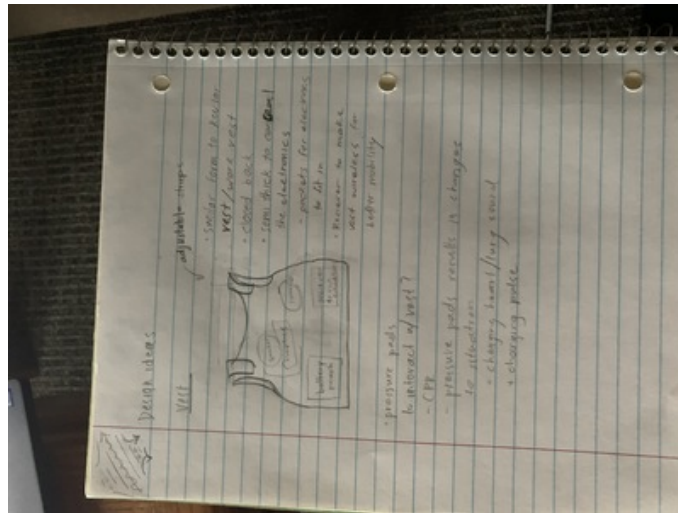 Design ideas
Vest
adjustable straps
• Similar form to
vest/work vest
• closed back
• semi thick to conceal
the electronics
- pockets for electronics
to fit in
• Receiver to make
vest wireless for
better mobility
battery
pouch
• pressure pads
to interact w/ vest?
- CPR
- pressure pads results in changes
to situation
- changing heart/lung sound
+ changing pulse